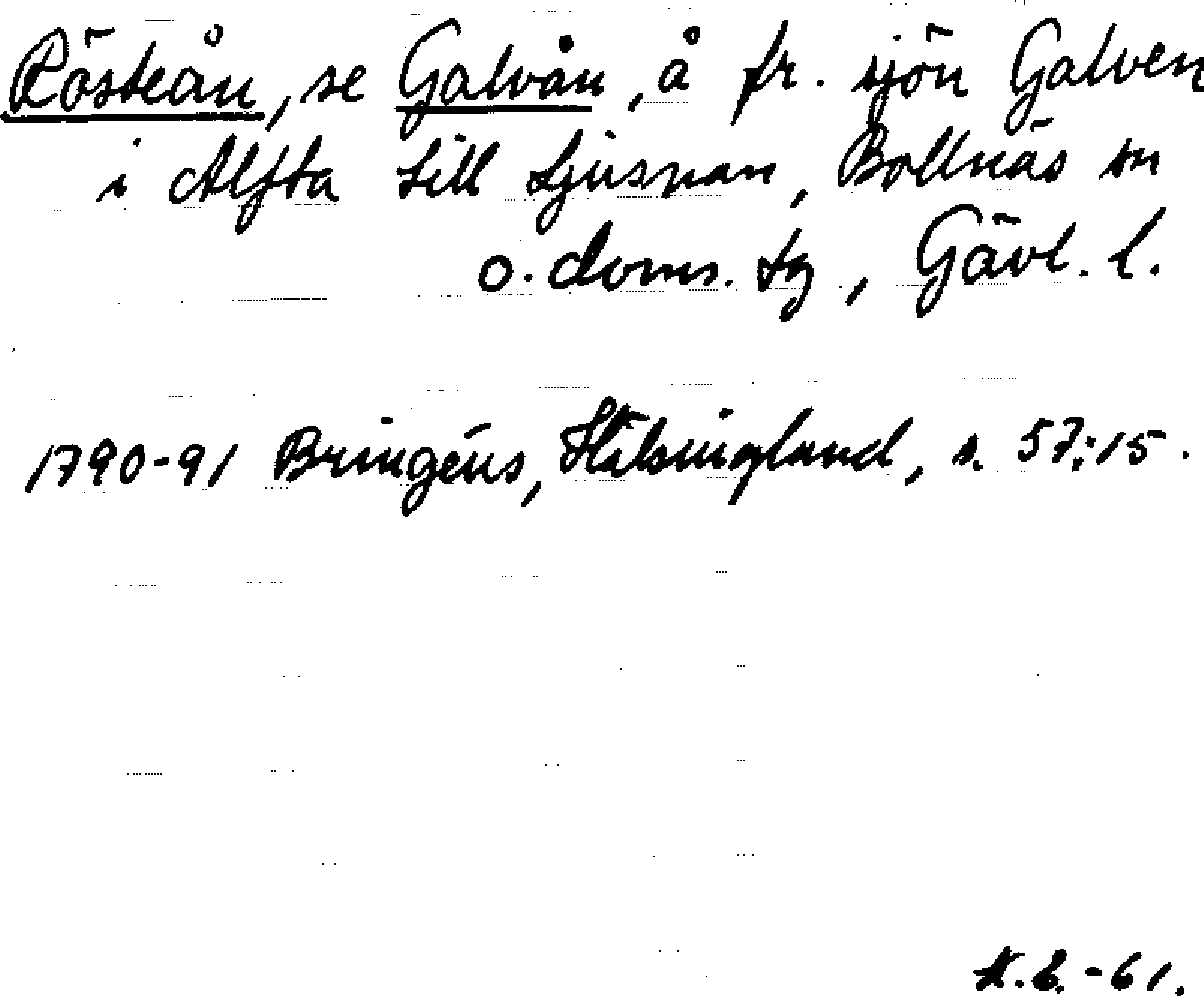 Rösteån, se Galvån, å fr. sjön Galven
i Alfta till Ljusnan, Bollnäs sn
o. doms. tg, Gävl. l.
1790-91 Bringéus, Hälsingland, s. 57:15.
-61.